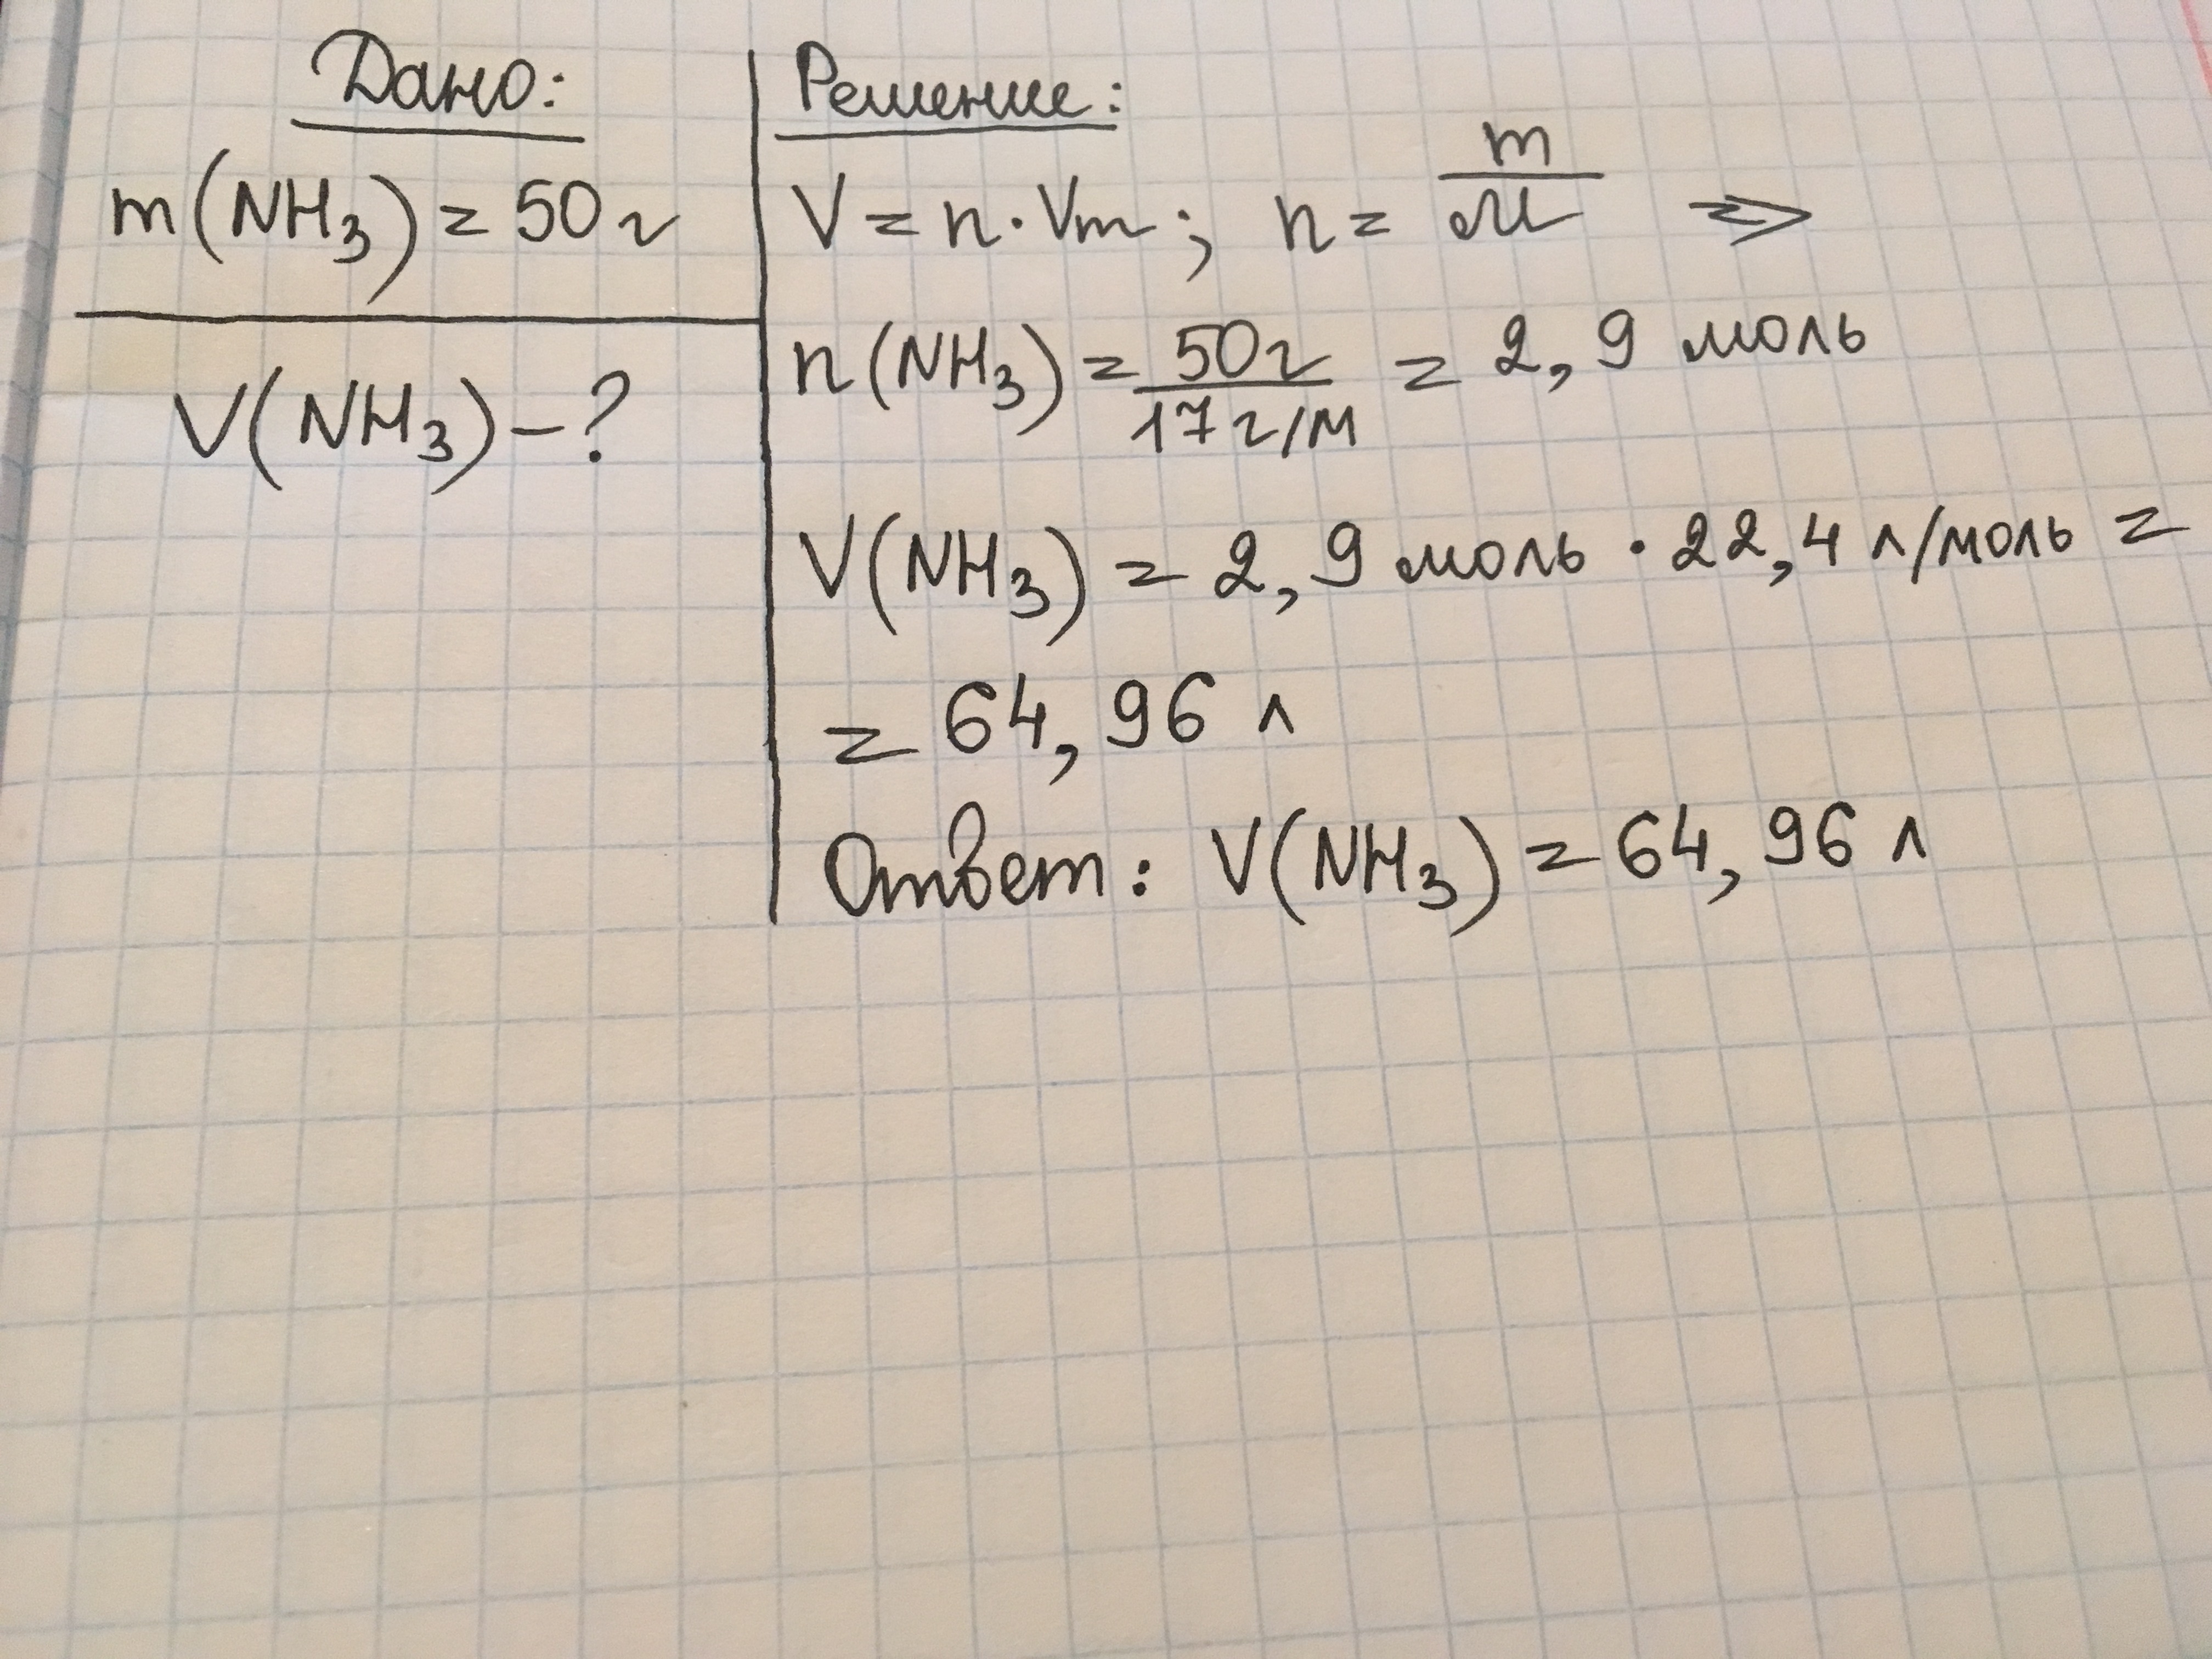 Дано:
m(NH₃) = 50 г
V(NH₃) - ?
Решение:
V = n · Vm ; n = m/M ⇒
n(NH₃) = 50 г / 17 г/М = 2,9 моль
V(NH₃) = 2,9 моль · 22,4 л/моль =
= 64,96 л
Ответ: V(NH₃) = 64,96 л